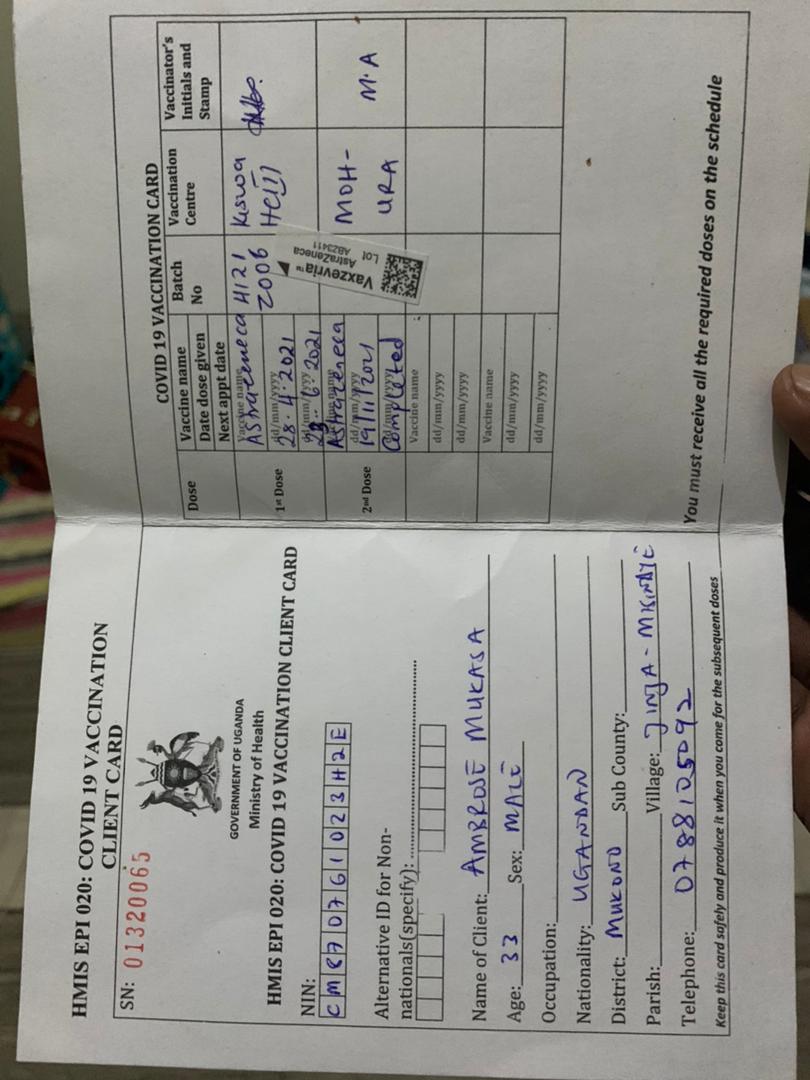 HMIS EPI 020: COVID 19 VACCINATION
CLIENT CARD
SN: 01320065
GOVERNMENT OF UGANDA
Ministry of Health
HMIS EPI 020: COVID 19 VACCINATION CLIENT CARD
NIN:
C M 8 7 0 7 6 1 0 2 3 H 2 E
Alternative ID for Non-
nationals(specify):
Name of Client: AMBROSE MUKASA
Age: 33 Sex: MALE
Occupation:
Nationality: UGANDAN
District: MUKONO Sub County:
Parish: Village: JINJA -
Telephone: 0788105092
Keep this card safely and produce it when you come for the subsequent doses
COVID 19 VACCINATION CARD
Dose
Vaccine name
Date dose given
Next appt date
Batch
No
Vaccination
Centre
Vaccinator's
Initials and
Stamp
1st Dose
Vaccine name
AstraZeneca
dd/mm/yyyy
28.4.2021
dd/mm/yyyy
6.2021
H121
2006
Kiswa
HCIII
2nd Dose
AstraZeneca
dd/mm/yyyy
19/11/2021
dd/mm/yyyy
Completed
Vaxzevria™
AstraZeneca
Lot AB23411
MOH-
URA
M.A
Vaccine name
dd/mm/yyyy
dd/mm/yyyy
Vaccine name
dd/mm/yyyy
dd/mm/yyyy
You must receive all the required doses on the schedule